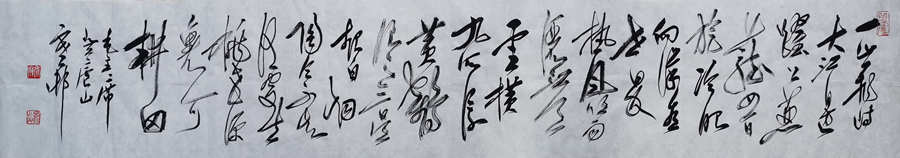 一山飛峙
大江邊
躍上葱
蘢四百
旋冷眼
向洋看
世界
熱風吹雨
灑江天
雲横
九派浮
黄鶴
浪下三吴
起白烟
陶令不知
何處去
桃花源
裏可
耕田
毛主席
登廬山